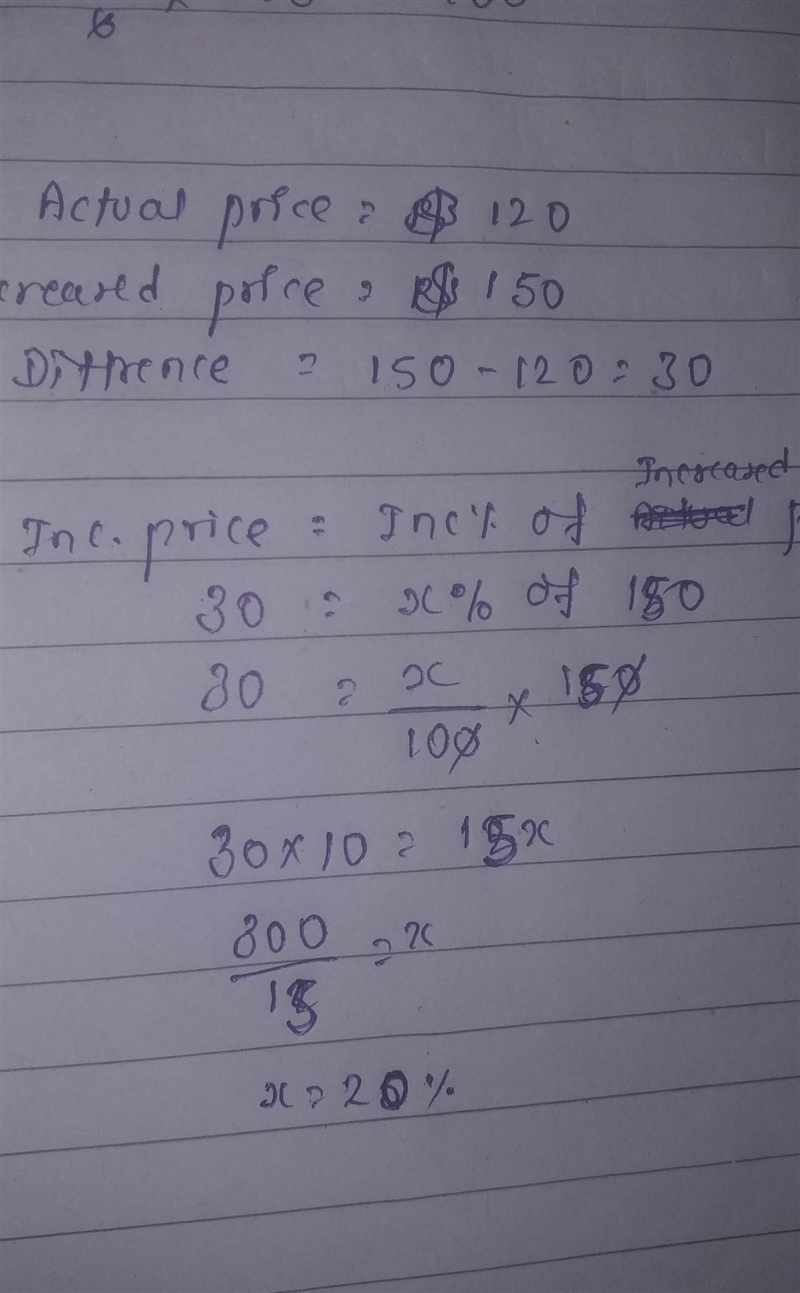 Actual price = 120
creased price = 150
Diffrence = 150 - 120 = 30
Increased
Inc. price = Inc% of
30 = x% of 150
30 = x/100 × 150
30 × 10 = 15x
300/15 = x
x = 20%